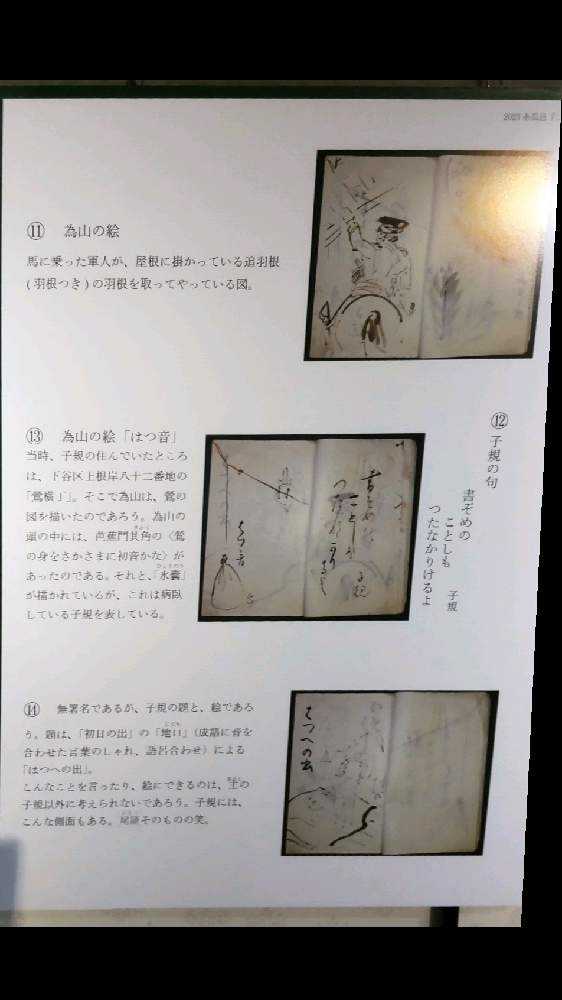 ⑪ 為山の絵
馬に乗った軍人が、屋根に掛かっている追羽根
(羽根つき)の羽根を取ってやっている図。
⑫ 子規の句
書ぞめの
ことしも
つたなかりけるよ
子規
⑬ 為山の絵「はつ音」
当時、子規の住んでいたところ
は、下谷区上根岸八十二番地の
「鶯横丁」。そこで為山は、鶯の
図を描いたのであろう。為山の
頭の中には、芭蕉門其角の〈鶯
の身をさかさまに初音かな〉が
あったのである。それと、「氷嚢」
が描かれているが、これは病臥
している子規を表している。
はつ音
⑭ 無署名であるが、子規の題と、絵であろ
う。題は、「初日の出」の「地口」(成語に音を
合わせた言葉のしゃれ、語呂合わせ)による
「はつへの出」。
こんなことを言ったり、絵にできるのは、主の
子規以外に考えられないであろう。子規には、
こんな側面もある。尾籠そのものの笑。
はつへの出